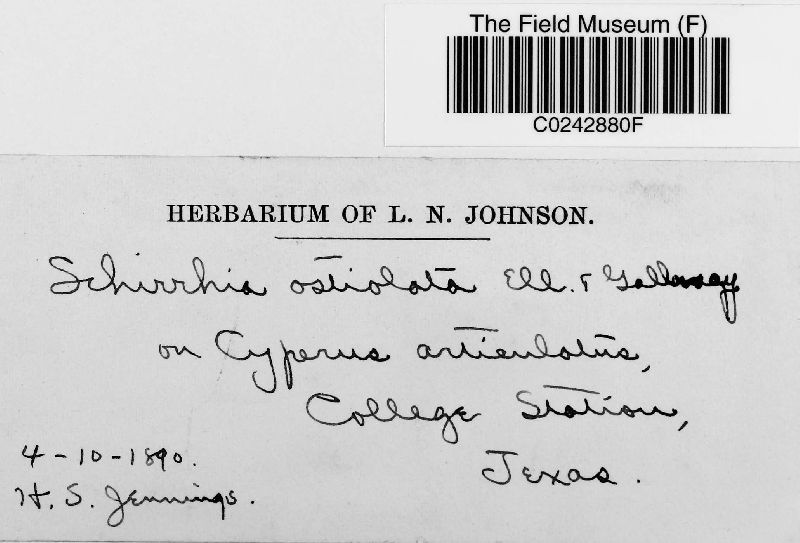 The Field Museum (F)
C0242880F
HERBARIUM OF L. N. JOHNSON.
Schirrhia ostiolata Ell. & Galloway
on Cyperus articulatus,
College Station,
Texas.
4-10-1890.
H. S. Jennings.